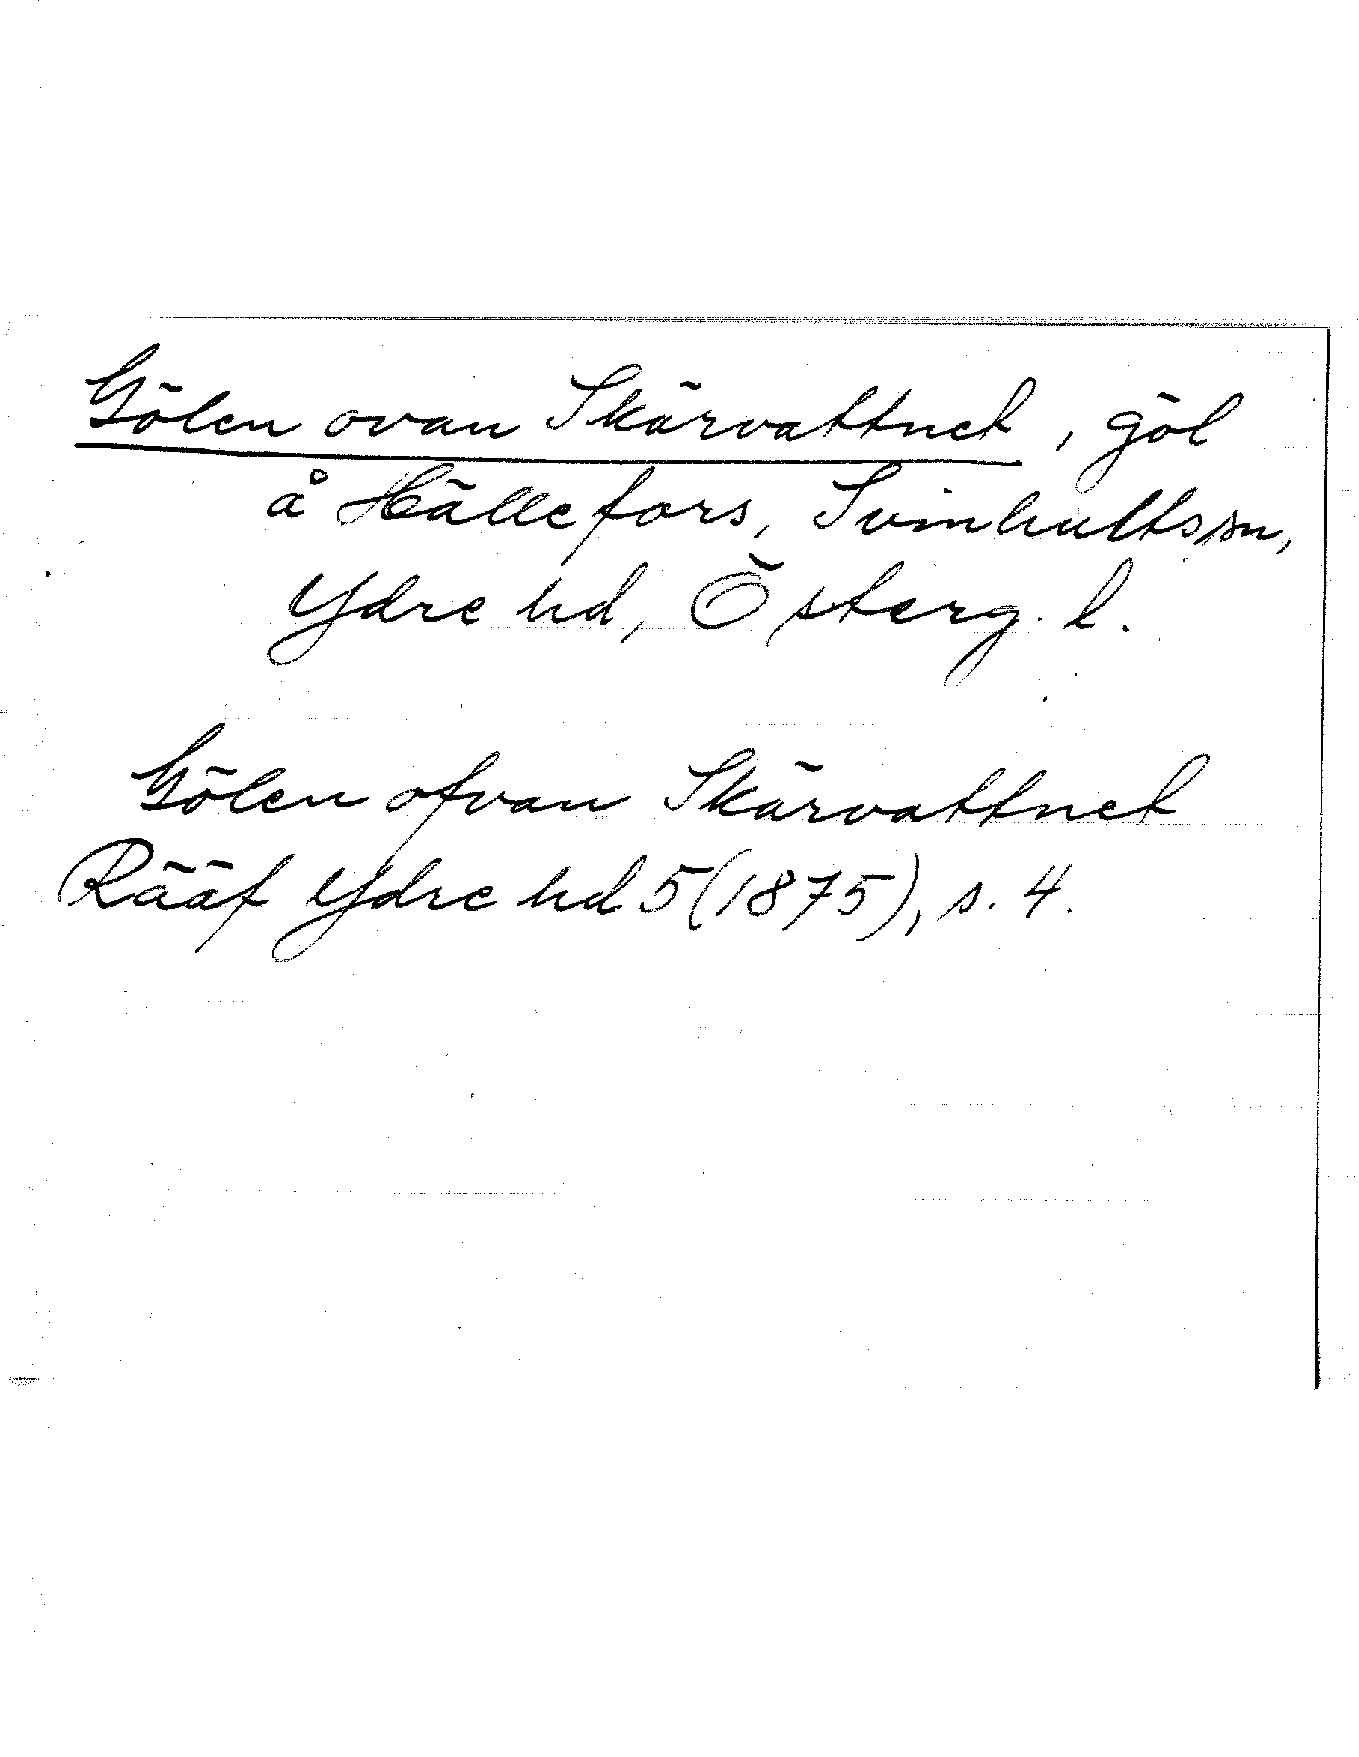 Gölen ovan Skärvattnet, göl
å Hällefors, Svinhults sn,
Ydre hd, Österg. l.
Gölen ofvan Skärvattnet
Rääf Ydre hd 5 (1875), s. 4.